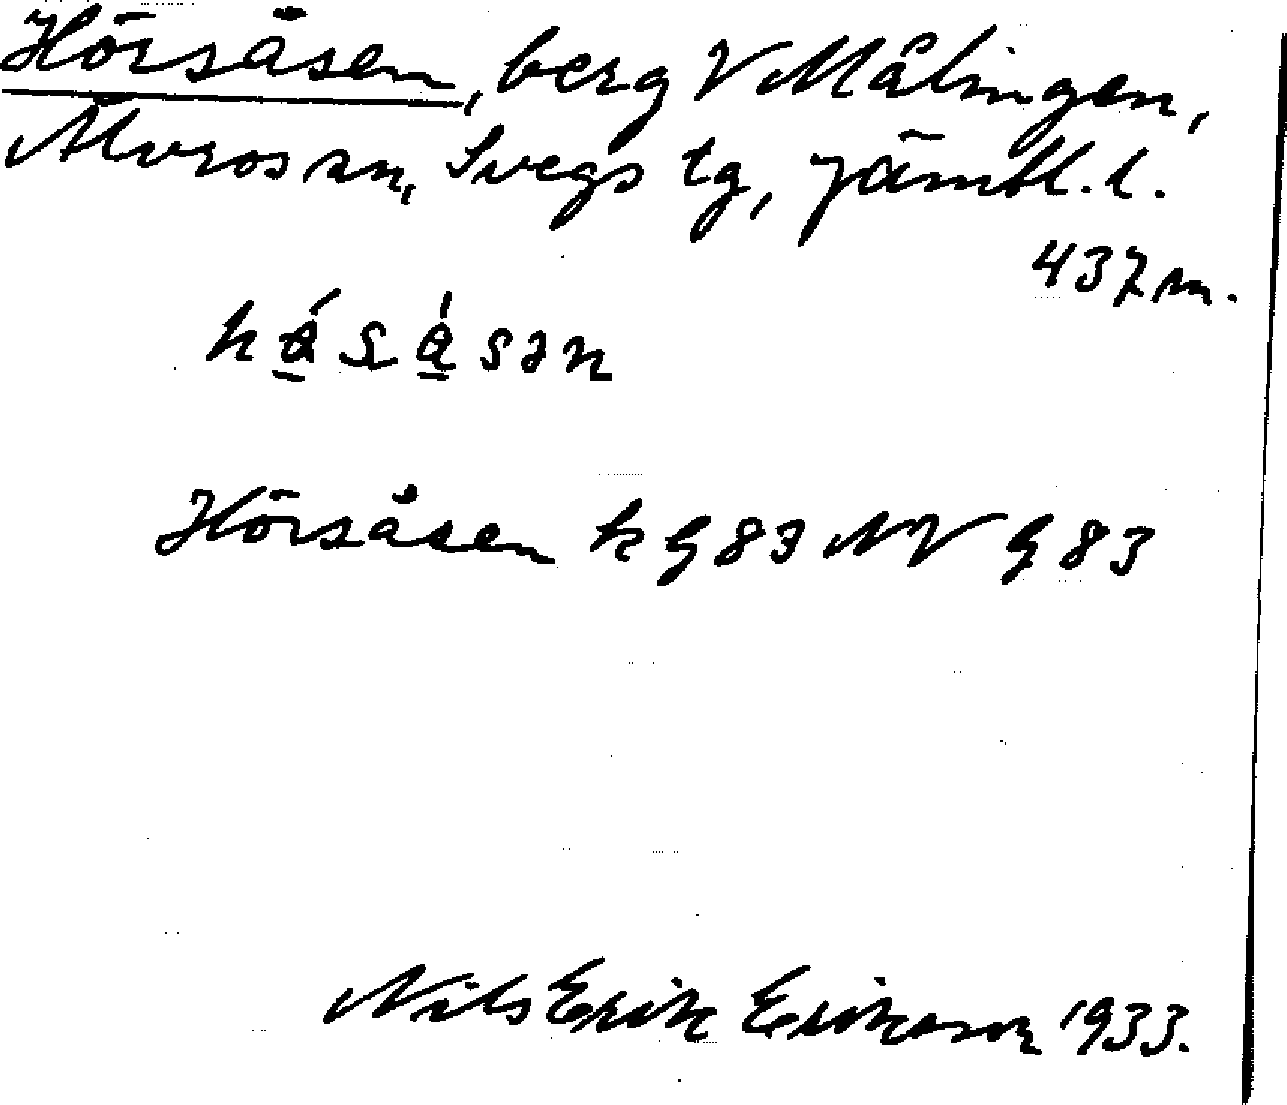 Hörsåsen, berg V Målingen,
Älvros sn, Svegs tg, Jämtl. l.
437 m.
Hörsåsen k G 83 NV G 83
Nils Erik Erikson 1933.